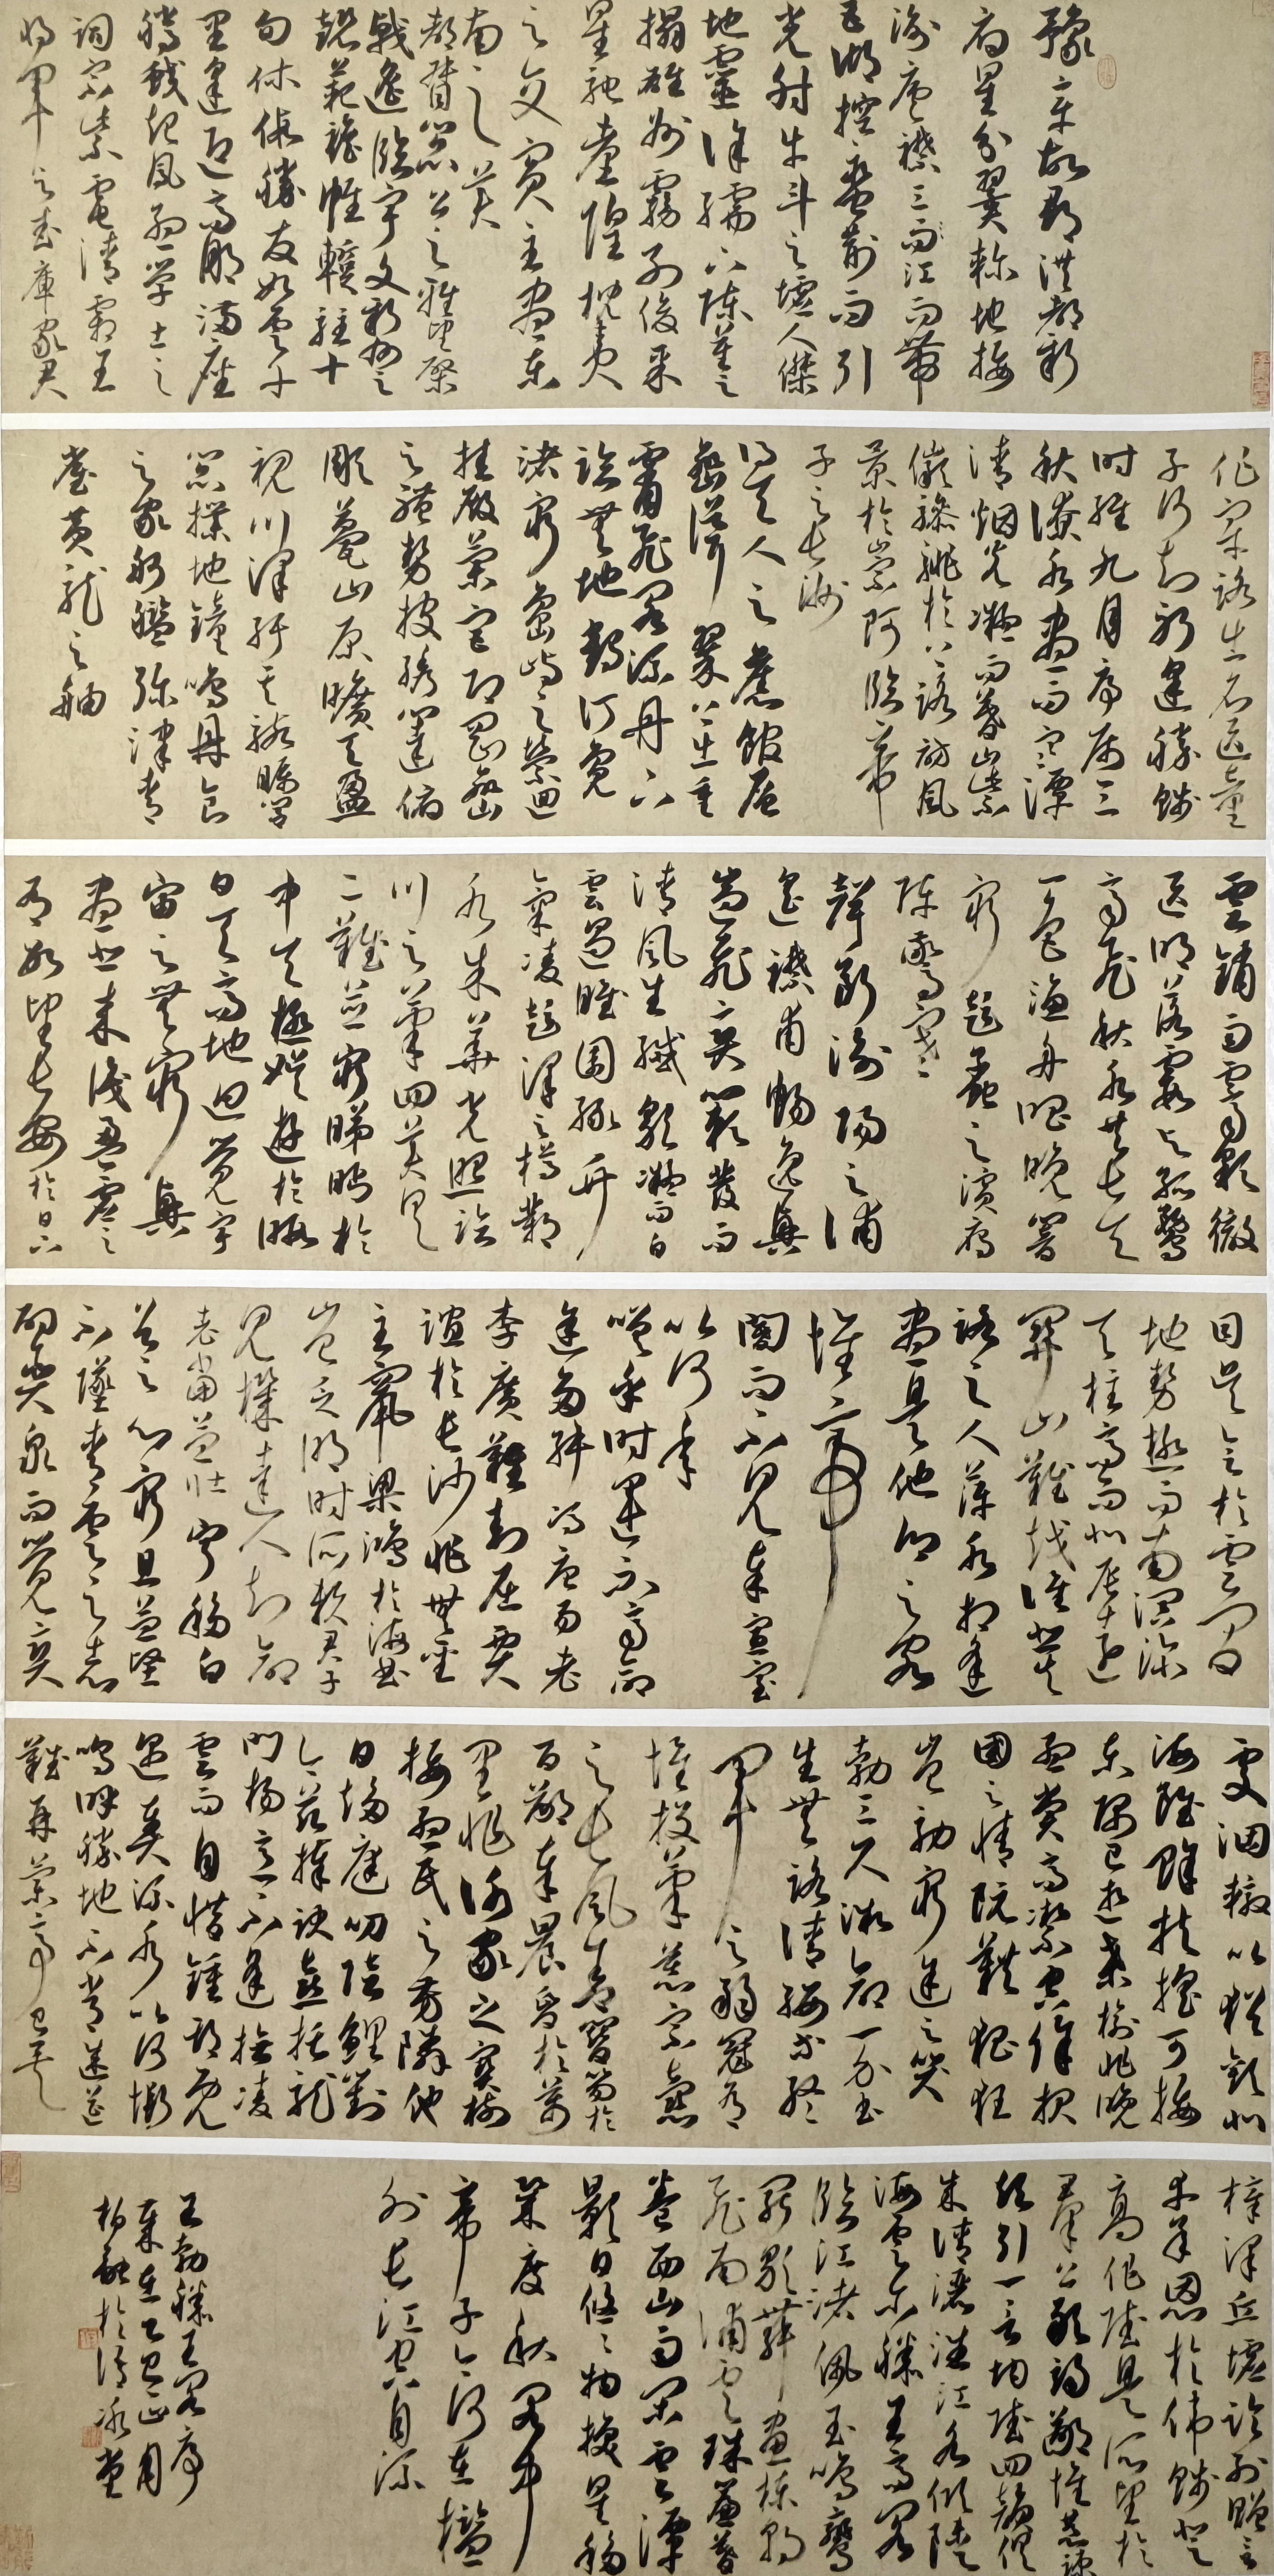 豫章故郡洪都新
府星分翼軫地接
衡廬襟三而江而帶
五湖控蠻荊而引
光射牛斗之墟人傑
地靈徐孺下陳蕃之
榻雄州霧列俊采
星馳臺隍枕夷
之交賓主盡東
南之美
都督閻公之雅望棨
戟遙臨宇文新州之
懿範襜帷暫駐十
旬休假勝友如雲千
里逢迎高朋滿座
騰蛟起鳳孟學士之
詞宗紫電清霜王
將軍之武庫家君
作宰路出名區童
子何知躬逢勝餞
時維九月序屬三
秋潦水盡而寒潭
清烟光凝而暮山紫
儼驂騑於上路訪風
景於崇阿臨帝
子之長洲
得天人之舊館層
巒聳翠上出重
霄飛閣流丹下
臨無地鶴汀鳧
渚窮島嶼之縈迴
桂殿蘭宮即岡巒
之體勢披繡闥俯
雕甍山原曠其盈
視川澤紆其駭矚閭
閻撲地鐘鳴鼎食
之家舸艦彌津青
雀黃龍之舳
雲銷雨霽彩徹
區明落霞與孤鶩
齊飛秋水共長天
一色漁舟唱晚響
窮彭蠡之濱雁
陣驚寒
聲斷衡陽之浦
遙襟甫暢逸興
遄飛爽籟發而
清風生纖歌凝而白
雲遏睢園綠竹
氣凌彭澤之樽鄴
水朱華光照臨
川之筆四美具
二難並窮睇眄於
中天極娛遊於暇
日天高地迥覺宇
宙之無窮興
盡悲來識盈虛之
有數望長安於日下
目吳會於雲間
地勢極而南溟深
天柱高而北辰遠
關山難越誰悲失
路之人萍水相逢
盡是他鄉之客
懷帝
閽而不見奉宣室
以何年
嗟乎時運不齊命
途多舛馮唐易老
李廣難封屈賈
誼於長沙非無聖
主竄梁鴻於海曲
豈乏明時所賴君子
見機達人知命
老當益壯寧移白
首之心窮且益堅
不墜青雲之志
酌貪泉而覺爽
處涸轍以猶歡北
海雖賒扶搖可接
東隅已逝桑榆非晚
孟嘗高潔空餘報
國之情阮籍猖狂
豈效窮途之哭
勃三尺微命一介書
生無路請纓等終
軍之弱冠有
懷投筆慕宗愨
之長風舍簪笏於
百齡奉晨昏於萬
里非謝家之寶樹
接孟氏之芳鄰他
日趨庭叨陪鯉對
今茲捧袂喜托龍
門楊意不逢撫凌
雲而自惜鍾期既
遇奏流水以何慚
嗚呼勝地不常盛筵
難再蘭亭已矣
梓澤丘墟臨別贈言
幸承恩於偉餞登
高作賦是所望於
群公敢竭鄙懷恭疏
短引一言均賦四韻俱
成請灑潘江各傾陸
海云爾滕王高閣
臨江渚佩玉鳴鸞
罷歌舞畫棟朝
飛南浦雲珠簾暮
捲西山雨閑雲潭
影日悠悠物換星移
幾度秋閣中
帝子今何在檻
外長江空自流
王勃滕王閣序
歲在乙巳正月